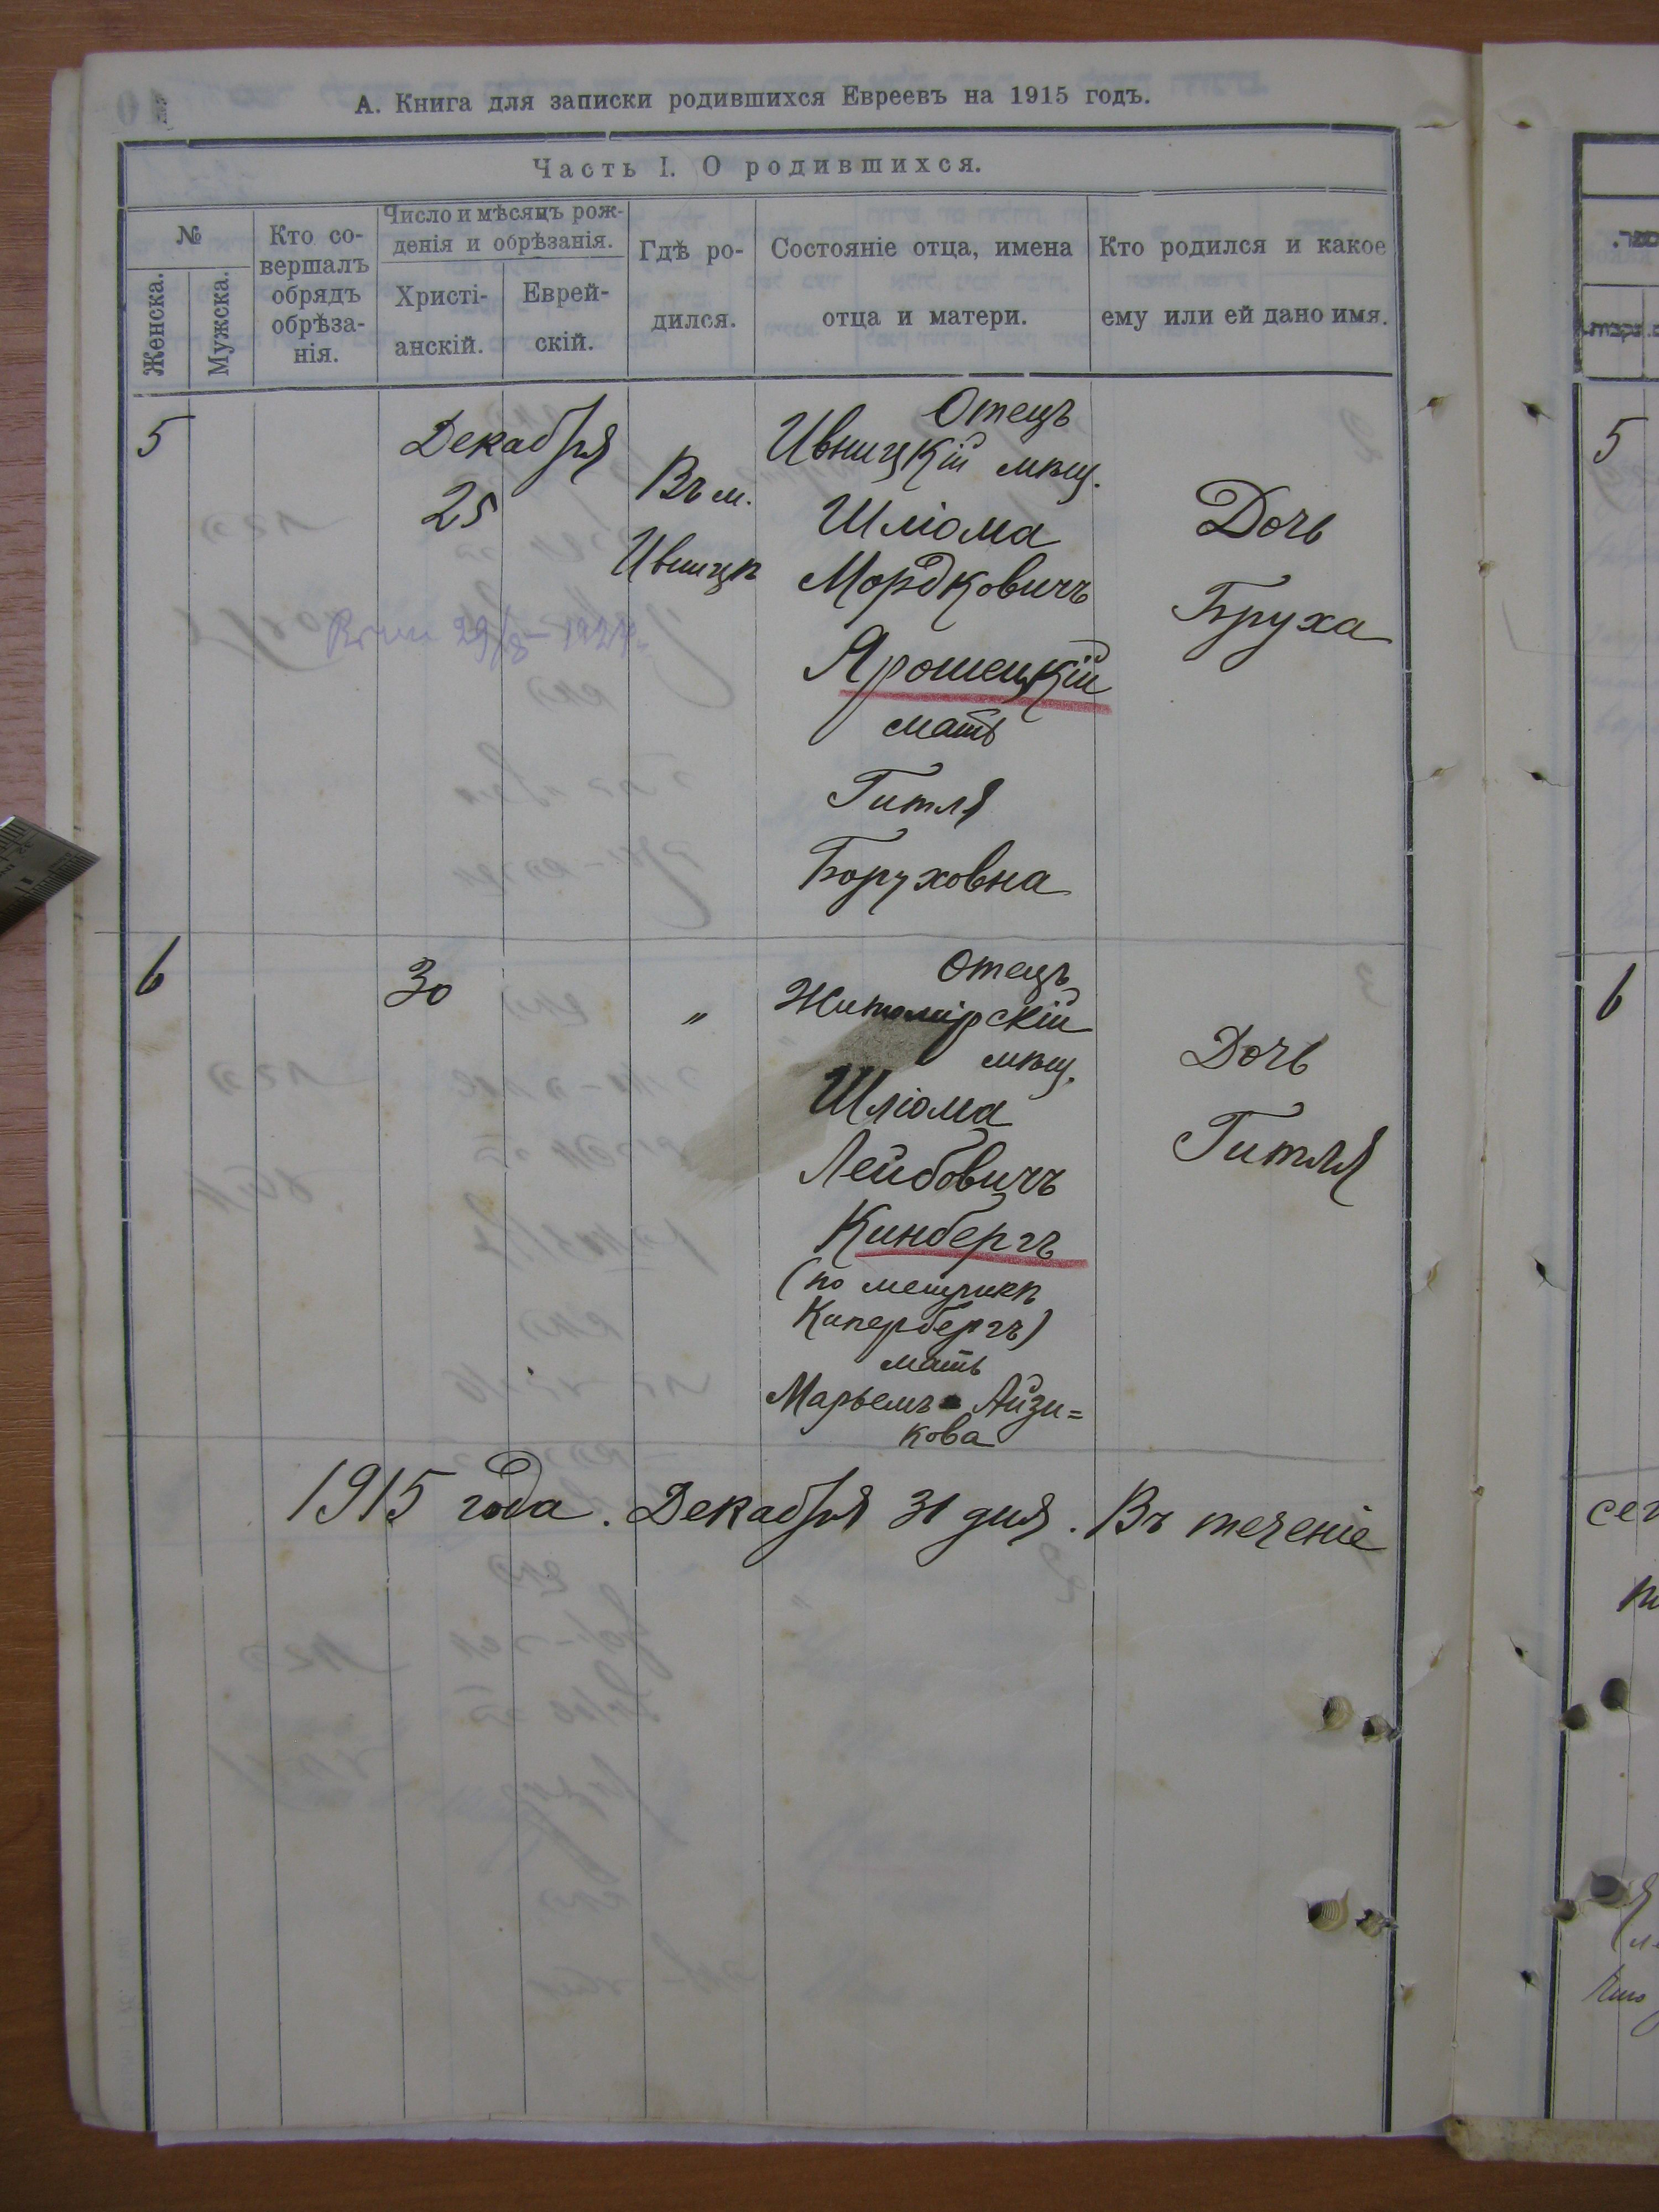 А. Книга для записки родившихся Евреевъ на 1915 годъ.
Часть I. О родившихся.
№
Женска.
Мужска.
Кто со-
вершалъ
обрядъ
обрѣза-
нія.
Число и мѣсяцъ рож-
денія и обрѣзанія.
Христі-
анскій.
Еврей-
скій.
Гдѣ ро-
дился.
Состояніе отца, имена
отца и матери.
Кто родился и какое
ему или ей дано имя.
5
Декабря
25
Въ м.
Ивницѣ
Отецъ
Ивницкій мѣщ.
Шліома
Мордковичъ
Ярошецкій
мать
Гитля
Боруховна
Дочь
Бруха
29/
6
30
"
Отецъ
Житомірскій
мѣщ.
Шліома
Лейбовичъ
Кинбергъ
(по метрикѣ
Кипербергъ)
мать
Марьемъ Айзи=
кова
Дочь
Гитля
1915 года. Декабря 31 дня. Въ теченіе
5
6